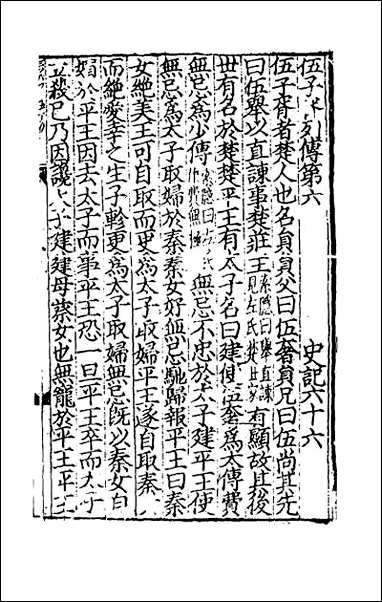 伍子胥列傳第六　史記六十六
伍子胥者楚人也名員員父曰伍奢員兄曰伍尚其先
曰伍舉以直諫事楚莊王索隱曰舉直諫見左氏楚世家有顯故其後
世有名於楚楚平王有太子名曰建使伍奢爲太傅費
無忌爲少傅索隱曰左傳作費無極無忌不忠於太子建平王使
無忌爲太子取婦於秦秦女好無忌馳歸報平王曰秦
女絶美王可自取而更爲太子取婦平王遂自取秦女
而絶愛幸之生子軫更爲太子取婦無忌旣以秦女自
媚於平王因去太子而事平王恐一旦平王卒而太子
立殺己乃因讒太子建建母蔡女也無寵於平王平王